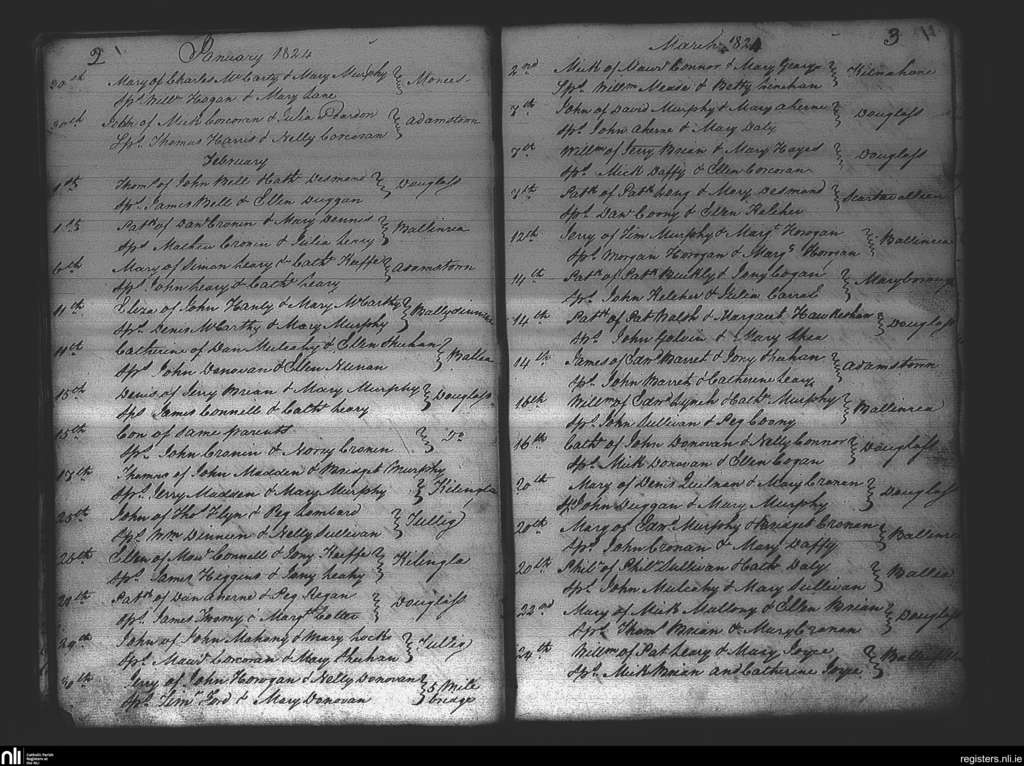 2
January 1824
30th Mary of Charles McCarty & Mary Murphy
Sps. Willm Hogan & Mary Lane
30th of Mick Corcoran & Julia Adamstown
Sps. Thomas Harris & Nelly Corcoran
February
1st Thoms of John Bell Cath Desmond Douglass
Sps. James Bell & Ellen Duggan
1st Patk of Danl Cronin & Mary Dennis Ballinrea
Sps Mathew Cronin & Julia Leary
6th Mary of Simon Leary & Cath Keeffe Adamstown
Sps. John Leary & Cath Leary
11th Eliza of John Hanly & Mary McCarthy
Sps. Denis McCarthy & Mary Murphy
11th Catherine of Dan Mulcahy & Ellen Shehan Ballea
Sps John Donovan & Ellen Keenan
15th Denis of Jerry Brian & Mary Murphy Douglass
Sps James Connell & Cath Leary
15th Con of Same parents Do
Sps. John Cronin & Norry Cronin
15th Thomas of John Madden & Bridget Murphy
Sps. Jerry Madden & Mary Murphy Kilengla
25th John of Thos Flyn & Peg Lombard Tullig
Sps Wm Dinneen & Nelly Sullivan
25th Ellen of Maud Connell & Jony Keeffe Kilengla
Sps. James Higgins & Jony Leahy
29th Patk of Dan Aherne & Peg Regan Douglass
Sps. James Twomy & Margt Cotter
29th John of John Mahony & Mary Locke Tullig
Sps. Maud Corcoran & Mary Shehan
30th Jerry of John Horogan & Nelly Donovan 5 Mile
Sps. Timy Ford & Mary Donovan bridge
3
March 1824
2nd Mick of Maud Connor & Mary Geary Kilnahone
Sps. Willm Meade & Betty Linehan
7th John of David Murphy & Mary Aherne Douglass
Sps. John Aherne & Mary Daly
7th Willm of Jerry Brian & Mary Hayes Douglass
Sps. Mick Daffy & Ellen Corcoran
7th Patk of Patk Long & Mary Desmond
Sps. Danl Coony & Ellen Keleher
12th Jerry of Tim Murphy & Margt Horogan Ballinrea
Sps. Morgan Horogan & Margt Horgan
14th Patk of Patk Buckly & Jony Cogan Maryborough
Sps. John Keleher & Julia Carrol
14th Patk of Pat Walsh & Margaret Douglass
Sps. John Golvin & Mary Shea
14th James of Edmd Barret & Jony Shehan Adamstown
Sps. John Barret & Catherine Leary
16th Willm of Edmd Lynch & Cath Murphy Ballinrea
Sps. John Sullivan & Peg Coony
16th Cath of John Donovan & Nelly Connor Douglass
Sps. Mick Donovan & Ellen Cogan
20th Mary of Denis Quilnan & Mary Cronan Douglass
Sps John Duggan & Mary Murphy
20th Mary of Edmd Murphy & Bridget Cronan Ballinrea
Sps. John Cronan & Mary Daffy
20th Phil of Phil Sullivan & Cath Daly Ballea
Sps. John Mulcahy & Mary Sullivan
22nd Mary of Mick Mallony & Ellen Brian Douglass
Sps. Thoms Brian & Mary Cronan
24th Willm of Pat Leary & Mary Joyce
Sps. Mick Brian and Catherine Joyce
nli Catholic Parish
Registers at
the NLI
registers.nli.ie